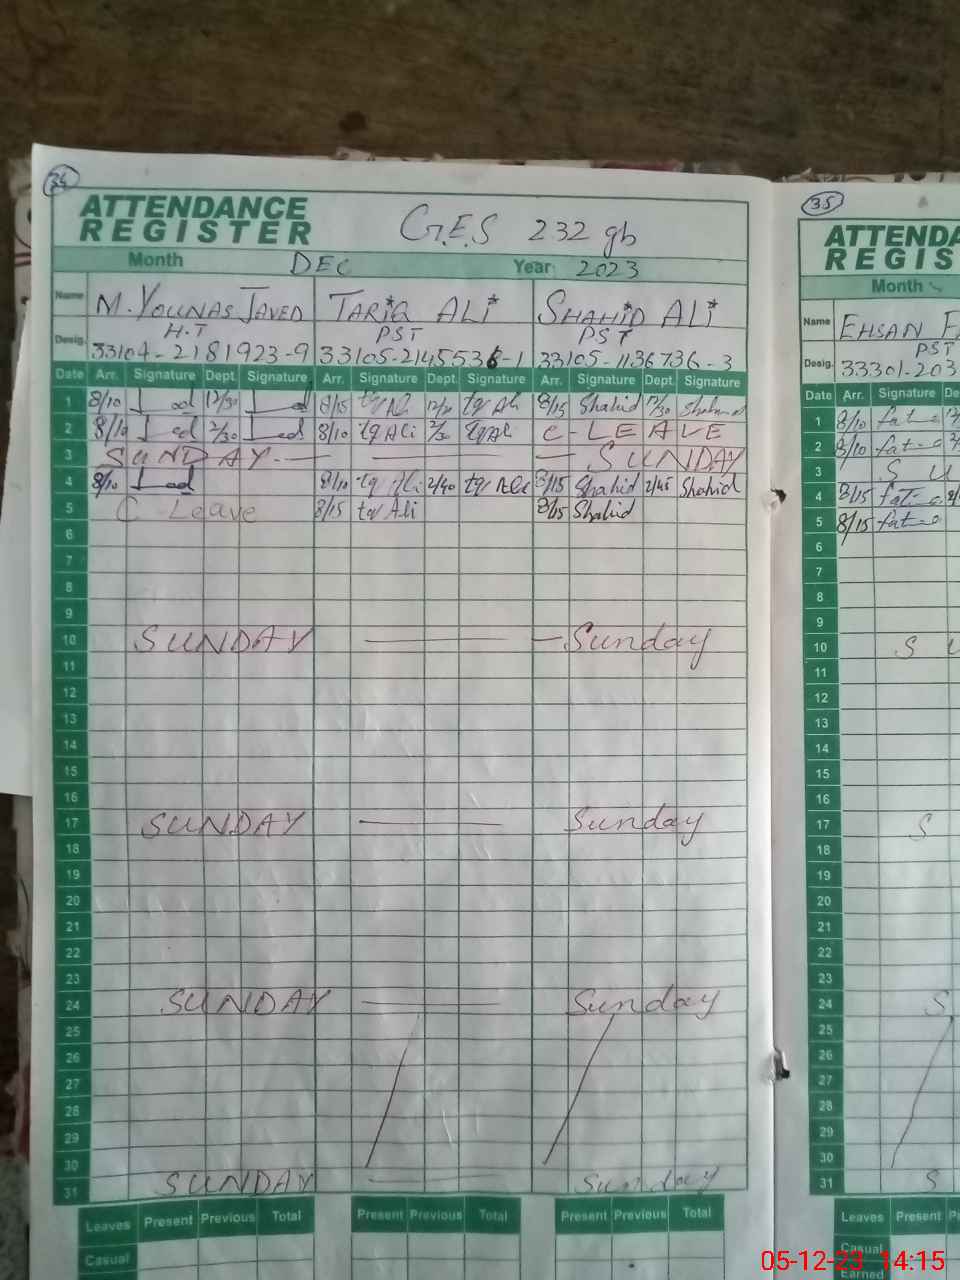 34
ATTENDANCE
REGISTER
G.E.S 232 gb
Month DEC Year 2023
Name M. YOUNAS JAVED TARIQ ALi SHAHiD ALi
Desig. H.T PST PST
33104-2181923-9 33105-2145536-1 33105-1136736-3
Date Arr. Signature Dept. Signature Arr. Signature Dept. Signature Arr. Signature Dept. Signature
1 8/10 12/30 8/15 tq Ali 12/30 tq Ali 8/15 Shahid 12/30 Shahid
2 8/10 2/30 8/10 tq Ali 2/30 tq Ali C-LEAVE
3 SUNDAY SUNDAY
4 8/10 8/10 tq Ali 2/40 tq Ali 8/15 Shahid 2/45 Shahid
5 C Leave 8/15 tq Ali 8/15 Shahid
6
7
8
9
10 SUNDAY Sunday
11
12
13
14
15
16
17 SUNDAY Sunday
18
19
20
21
22
23
24 SUNDAY Sunday
25
26
27
28
29
30
31 SUNDAY Sunday
Leaves Present Previous Total Present Previous Total Present Previous Total
Casual
35
ATTENDA
REGIS
Month
Name EHSAN
Desig. PST
33301-203
Date Arr. Signature De
1 8/10
2 8/10
3 S U
4 8/15
5 8/15
6
7
8
9
10 S U
11
12
13
14
15
16
17 S
18
19
20
21
22
23
24 S
25
26
27
28
29
30
31 S
Leaves Present P
Casual
Earned
05-12-23 14:15